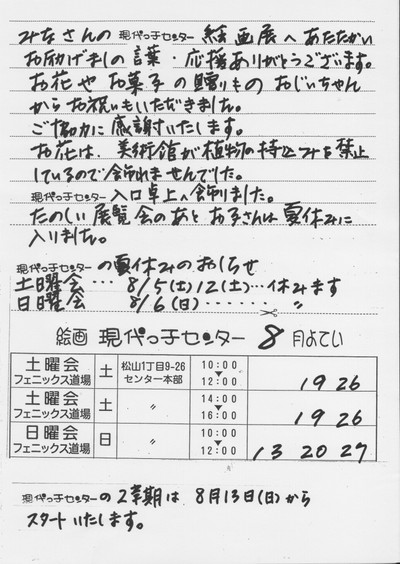 みなさんの 現代っ子センター 絵画展へあたたかい
お励げましの言葉・応援ありがとうございます。
お花やお菓子の贈りもの おじいちゃん
からお祝いもいただきました。
ご協力に感謝いたします。
お花は、美術館が植物の持込みを禁止
しているので飾れませんでした。
現代っ子センター 入口卓上へ飾りました。
たのしい展覧会のあと お子さんは夏休みに
入りました。
現代っ子センター の夏休みのお知らせ
土曜会・・・ 8/5(土)12(土)・・・休みます
日曜会 8/6(日)・・・・・・ 〃
絵画 現代っ子センター 8月よてい
土曜会 フェニックス道場 土 松山1丁目9-26 センター本部 10:00 ▼ 12:00 19 26
土曜会 フェニックス道場 土 〃 14:00 ▼ 16:00 19 26
日曜会 フェニックス道場 日 〃 10:00 ▼ 12:00 13 20 27
現代っ子センター の2学期は 8月13日(日)から
スタートいたします。